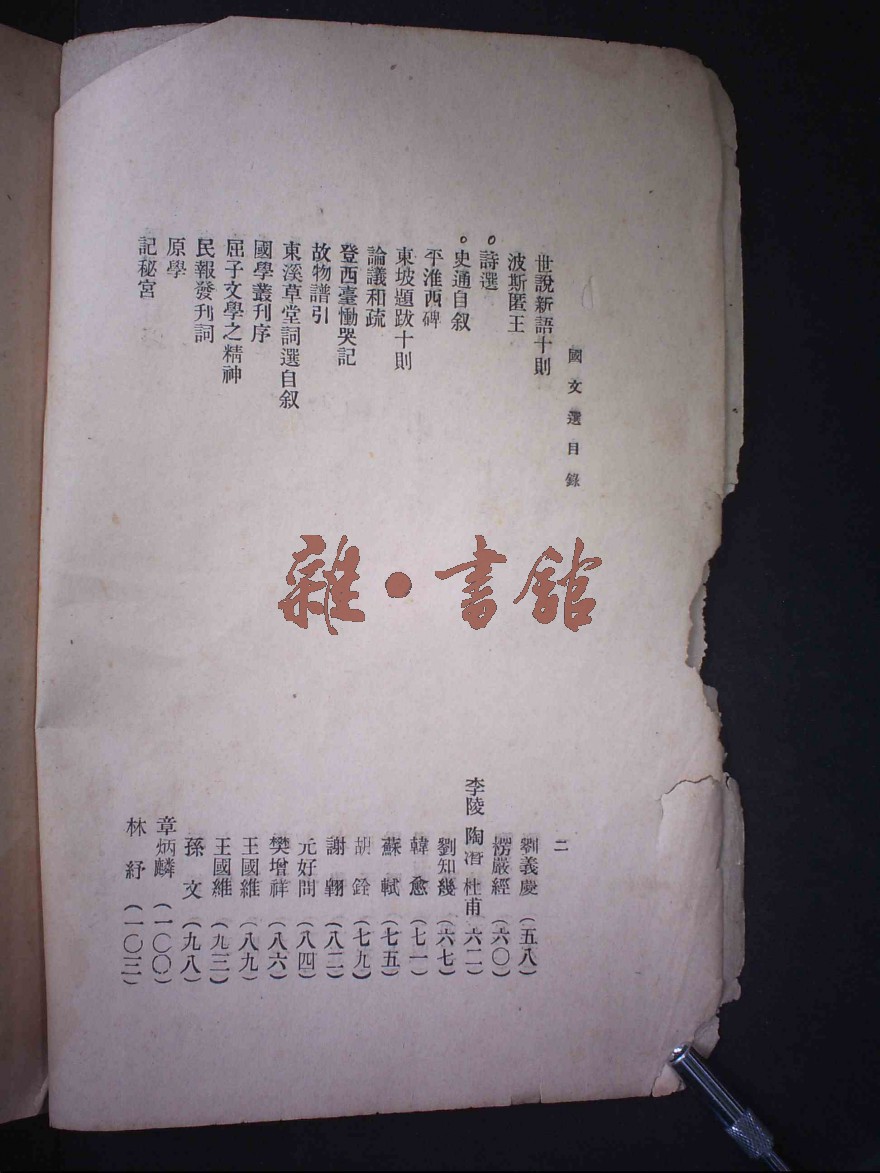 國文選目錄
二
世說新語十則 劉義慶 (五八)
波斯匿王 楞嚴經 (六〇)
詩選 李陵 陶潛 杜甫 六二)
史通自叙 劉知幾 (六七)
平淮西碑 韓愈 (七一)
東坡題跋十則 蘇軾 (七五)
論議和疏 胡銓 (七九)
登西臺慟哭記 謝翱 (八二)
故物譜引 元好問 (八四)
東溪草堂詞選自叙 樊增祥 (八六)
國學叢刊序 王國維 (八九)
屈子文學之精神 王國維 (九三)
民報發刊詞 孫文 (九八)
原學 章炳麟 (一〇〇)
記秘宮 林紓 (一〇三)
雜·書館